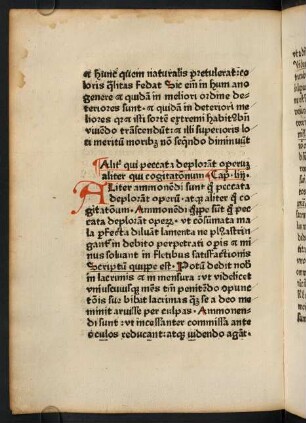 et hunc quem naturalis pretulerat: co
loris qͥlitas fedat Sic em̄ in hum ano
genere et quidā in meliori ordine de-
teriores sunt. et quidam in deteriori me
liores qꝛ isti sorte extremi habitū bn̄
viuēdo trāscendūt: et illi superioris lo
ci meritū moribꝫ nō seqn̄do diminuūt
Alit̕ qui peccata deplorāt operū
aliter qui cogitationum Cap. liij.
ALiter ammonēdi sunt qͥ peccata
deplorant operū. atqꝫ aliter qͥ co
gitatōnum. Ammonēdi qͥppe sūt qͥ pec
cata deplorāt opeꝝ. vt cōsumata ma
la ꝑfecta diluāt lamenta ne plꝰ astrin
gant in debito perpetrati opis et mi
nus soluant in fletibus satisfactiōnis
Scriptū quippe est. Potū dedit nob
in lacrimis et in mensura: vt videlicet
vniuscuiusqꝫ mēs tm̄ penitēdo opunc
tōis sue bibat lacrimas qͣꝫ se a deo me
minit aruisse per culpas. Ammonen-
di sunt: vt incessanter commissa ante
oculos reducant: atqꝫ videndo agāt.